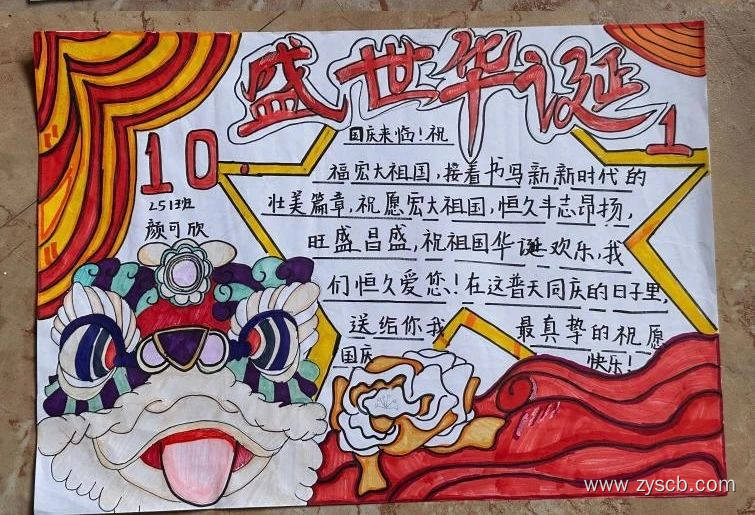 盛世华诞
10.1
251班
颜可欣
国庆来临!祝
福宏大祖国,接着书写新新时代的
壮美篇章,祝愿宏大祖国,恒久斗志昂扬,
旺盛昌盛,祝祖国华诞欢乐,我
们恒久爱您!在这普天同庆的日子里,
送给你我 最真挚的祝愿
国庆 快乐!
www.zyscb.com